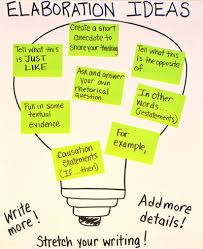 ELABORATION IDEAS
Create a short
anecdote to
share your thinking
Tell what this
is JUST
LIKE
Tell what this
is the opposite
of.
Ask and answer
your own
rhetorical
question.
Pull in some
textual
evidence
In Other
Words...
(restatements)
For
example,
Causation
Statements
(If...then)
Write
more!
Add more
details!
Stretch your writing!